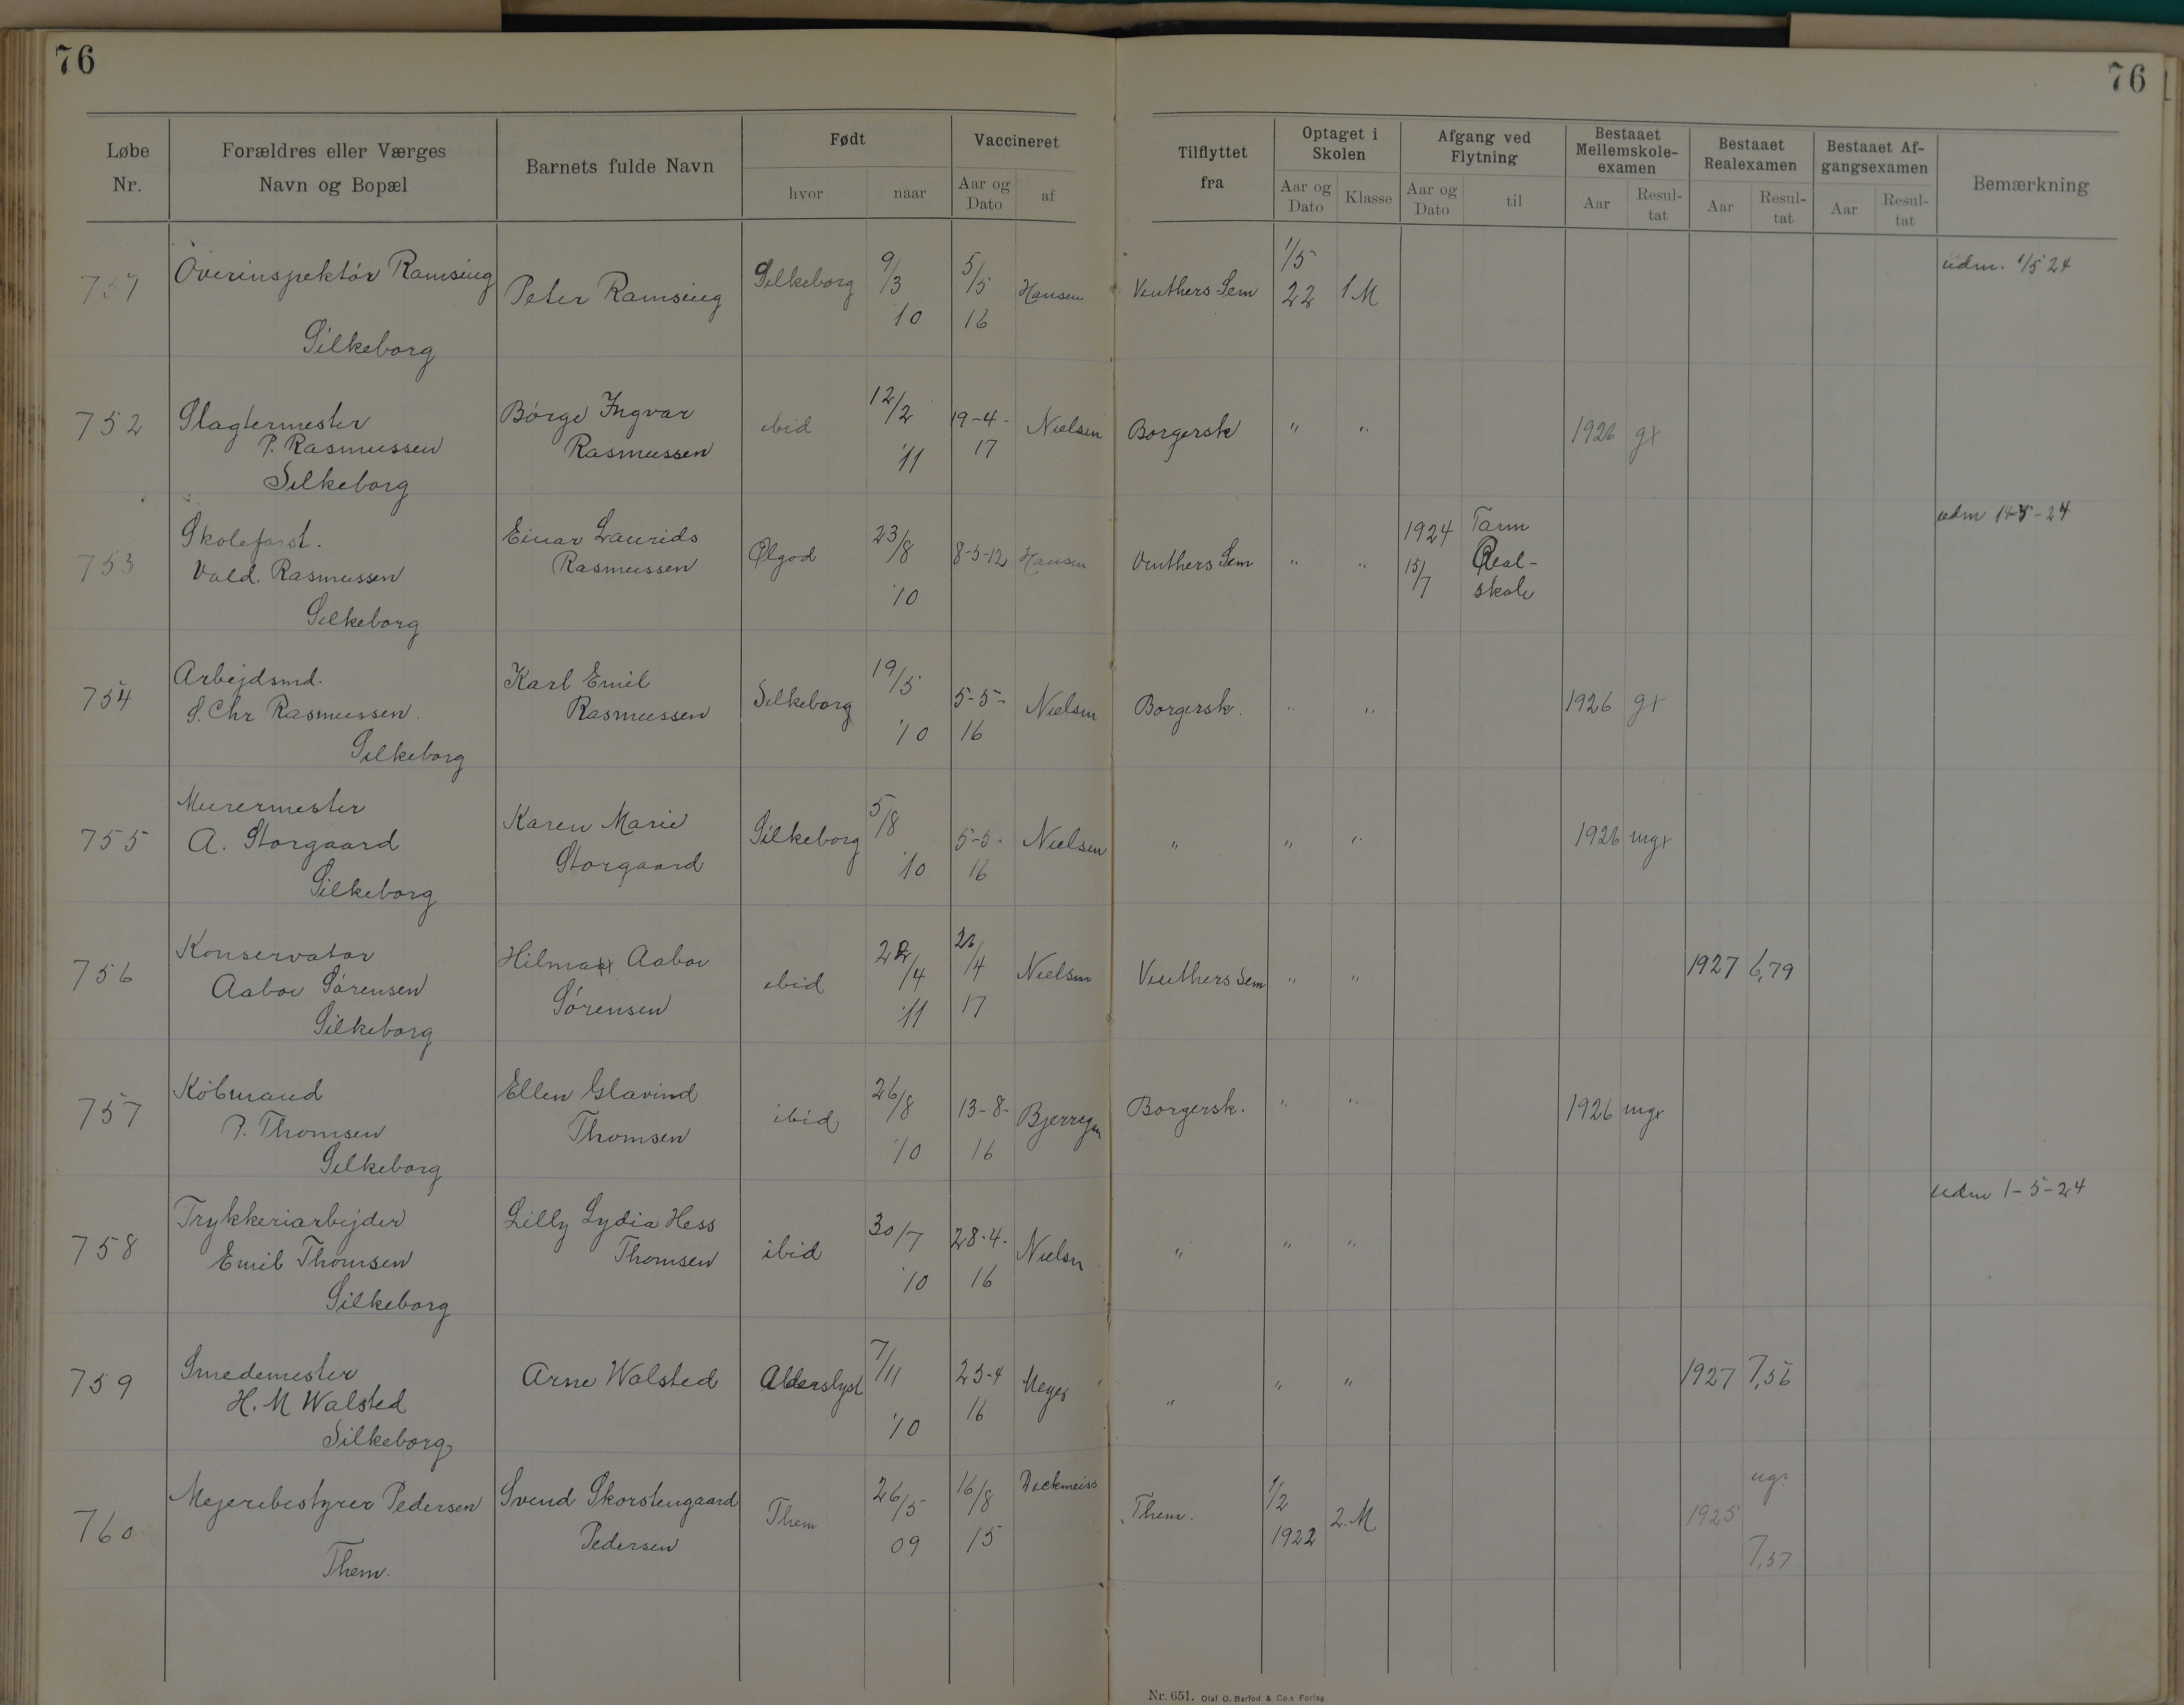 76
76
Løbe Nr.
Forældres eller Værges Navn og Bopæl
Barnets fulde Navn
Født
hvor
naar
Vaccineret
Aar og Dato
af
Tilflyttet fra
Optaget i Skolen
Aar og Dato
Klasse
Afgang ved Flytning
Aar og Dato
til
Bestaaet Mellemskole-examen
Aar
Resul-tat
Bestaaet Realexamen
Aar
Resul-tat
Bestaaet Af-gangsexamen
Aar
Resul-tat
Bemærkning
751 Overinspektör Ramsing Silkeborg Peter Ramsing Silkeborg 9/3 10 5/5 16 Hansen Venthers Sem 1/5 22 1 M udm. 1/5 24
752 Slagtermester P. Rasmussen Silkeborg Börge Ingvar Rasmussen ibid 12/2 '11 19-4-17 Nielsen Borgersk " " 1926 g+
753 Skoleforst. Vald. Rasmussen Silkeborg Einar Laurids Rasmussen Ølgod 23/8 '10 8-5-12 Hansen Venthers Sem " " 1924 15/7 Tarm Real-skole udm 14-5-24
754 Arbejdsmd. S. Chr Rasmussen Silkeborg Karl Emil Rasmussen Silkeborg 19/5 '10 5-5-16 Nielsen Borgersk. " " 1926 g+
755 Murermester A. Storgaard Silkeborg Karen Marie Storgaard Silkeborg 5/8 '10 5-5-16 Nielsen " " " 1926 mg+
756 Konservator Aaboe Sörensen Silkeborg Hilmar Aaboe Sörensen ibid /4 '11 /4 17 Nielsen Venthers Sem " " 1927 6,79
757 Köbmand P. Thomsen Silkeborg Ellen Glavind Thomsen ibid 26/8 '10 13-8-16 Bjerregn Borgersk. " " 1926 mg+
758 Trykkeriarbejder Emil Thomsen Silkeborg Lilly Lydia Hess Thomsen ibid 30/7 '10 28-4-16 Nielsn " " " udm 1-5-24
759 Smedemester H. M Walsted Silkeborg Arne Walsted Alderslyst 7/11 '10 25-4 16 Meyer " " " 1927 7,56
760 Mejeribestyrer Pedersen Them. Svend Skorstengaard Pedersen Them 26/5 09 16/8 15 Them. 1/2 1922 2. M 1925 ug÷ 7,57
Nr. 651. Olaf O. Barfod & Co.s Forlag.